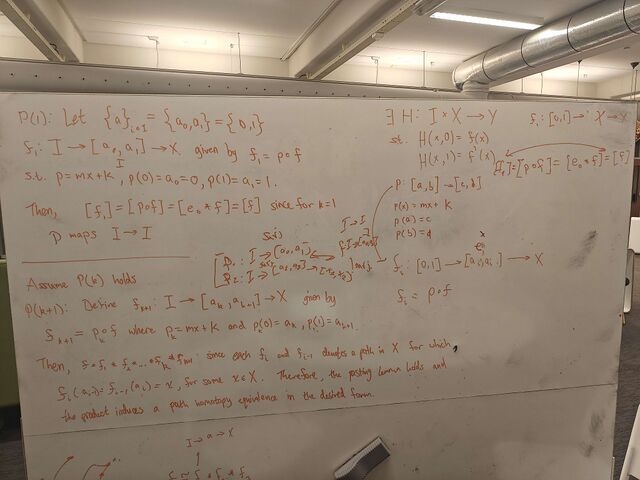 P(1): Let {a}i∈I = {a₀, a₁} = {0, 1}
f₁: I → [a₀, a₁] → X given by f₁ = p∘f
I
s.t. p = mx + k, p(0) = a₀ = 0, p(1) = a₁ = 1.
Then, [f₁] = [p∘f] = [e₀ * f] = [f] since for k=1
p maps I → I
Assume P(k) holds
P(k+1): Define fₖ₊₁: I → [aₖ, aₖ₊₁] → X given by
fₖ₊₁ = pₖ∘f where pₖ = mx + k and pₖ(0) = aₖ, pₖ(1) = aₖ₊₁
Then, since each fᵢ and fᵢ₋₁ denotes a path in X for which,
= x, for some x∈X. Therefore, the pasting lemma holds and
the product induces a path homotopy equivalence in the desired form.
∃ H: I × X → Y
st. H(x,0) = f(x)
H(x,1) = f'(x)
fᵢ: [0,1] → X → X
= [p∘f] = [e₀ * f] = [f]
p: [a,b] → [c,d]
p(x) = mx + k
p(a) = c
p(b) = d
I → I
p₁: I → [a₀, a₁]
p₂: I →
x
fᵢ: [0,1] → → X
fᵢ = p∘f
I → a → X